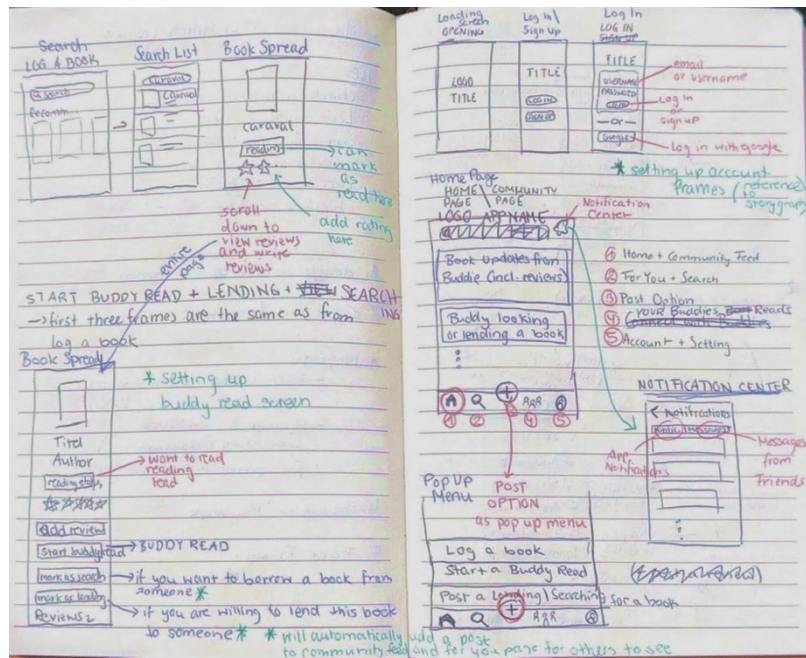 Search
LOG A BOOK
search
Recomm.
Search List
Caraval
Caraval
Book Spread
caraval
reading
can
mark
as
read here
add rating
here
scroll
down to
view reviews
and write
reviews
entire
page
START BUDDY READ + LENDING + SEARCH
ING
→first three frames are the same as from
log a book
Book Spread
* setting up
buddy read screen
Titel
Author
want to read
reading
read
Add review
Start buddyread
BUDDY READ
mark as search
if you want to borrow a book from
someone *
mark as lending
if you are willing to lend this book
to someone *
Reviews
* will automatically add a post
to community feed and for you page for others to see
Loading
screen
OPENING
LOGO
TITLE
Log In\
Sign Up
TITLE
LOG IN
SIGN UP
Log In
LOG IN
SIGN UP
TITLE
USERNAME
PASSWORD
— or —
Google
email
or username
Log in
or
sign up
Log in with google
* setting up account
frames (reference
to
storygraph)
Home Page
HOME \ COMMUNITY
PAGE \ PAGE
LOGO APP NAME
Notification
Center
Book updates from
Buddie (incl. reviews)
Buddy looking
or lending a book
① Home + Community Feed
② For You + Search
③ Post Option
④ YOUR Buddies Reads
Connect with Buddies
⑤ Account + Setting
① ② ④ ⑤
NOTIFICATION CENTER
< Notifications
App
Notifications
Messages
from
Friends
Pop Up
Menu
POST
OPTION
as pop up menu
Log a book
Start a Buddy Read
Post a Lending \ Searching for a book